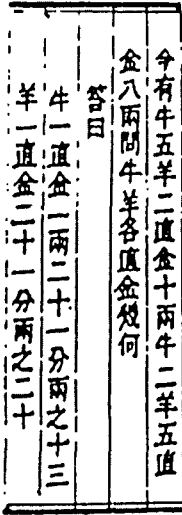 今有牛五羊二直金十兩牛二羊五直
金八兩問牛羊各直金幾何
答曰
牛一直金一兩二十一分兩之十三
羊一直金二十一分兩之二十